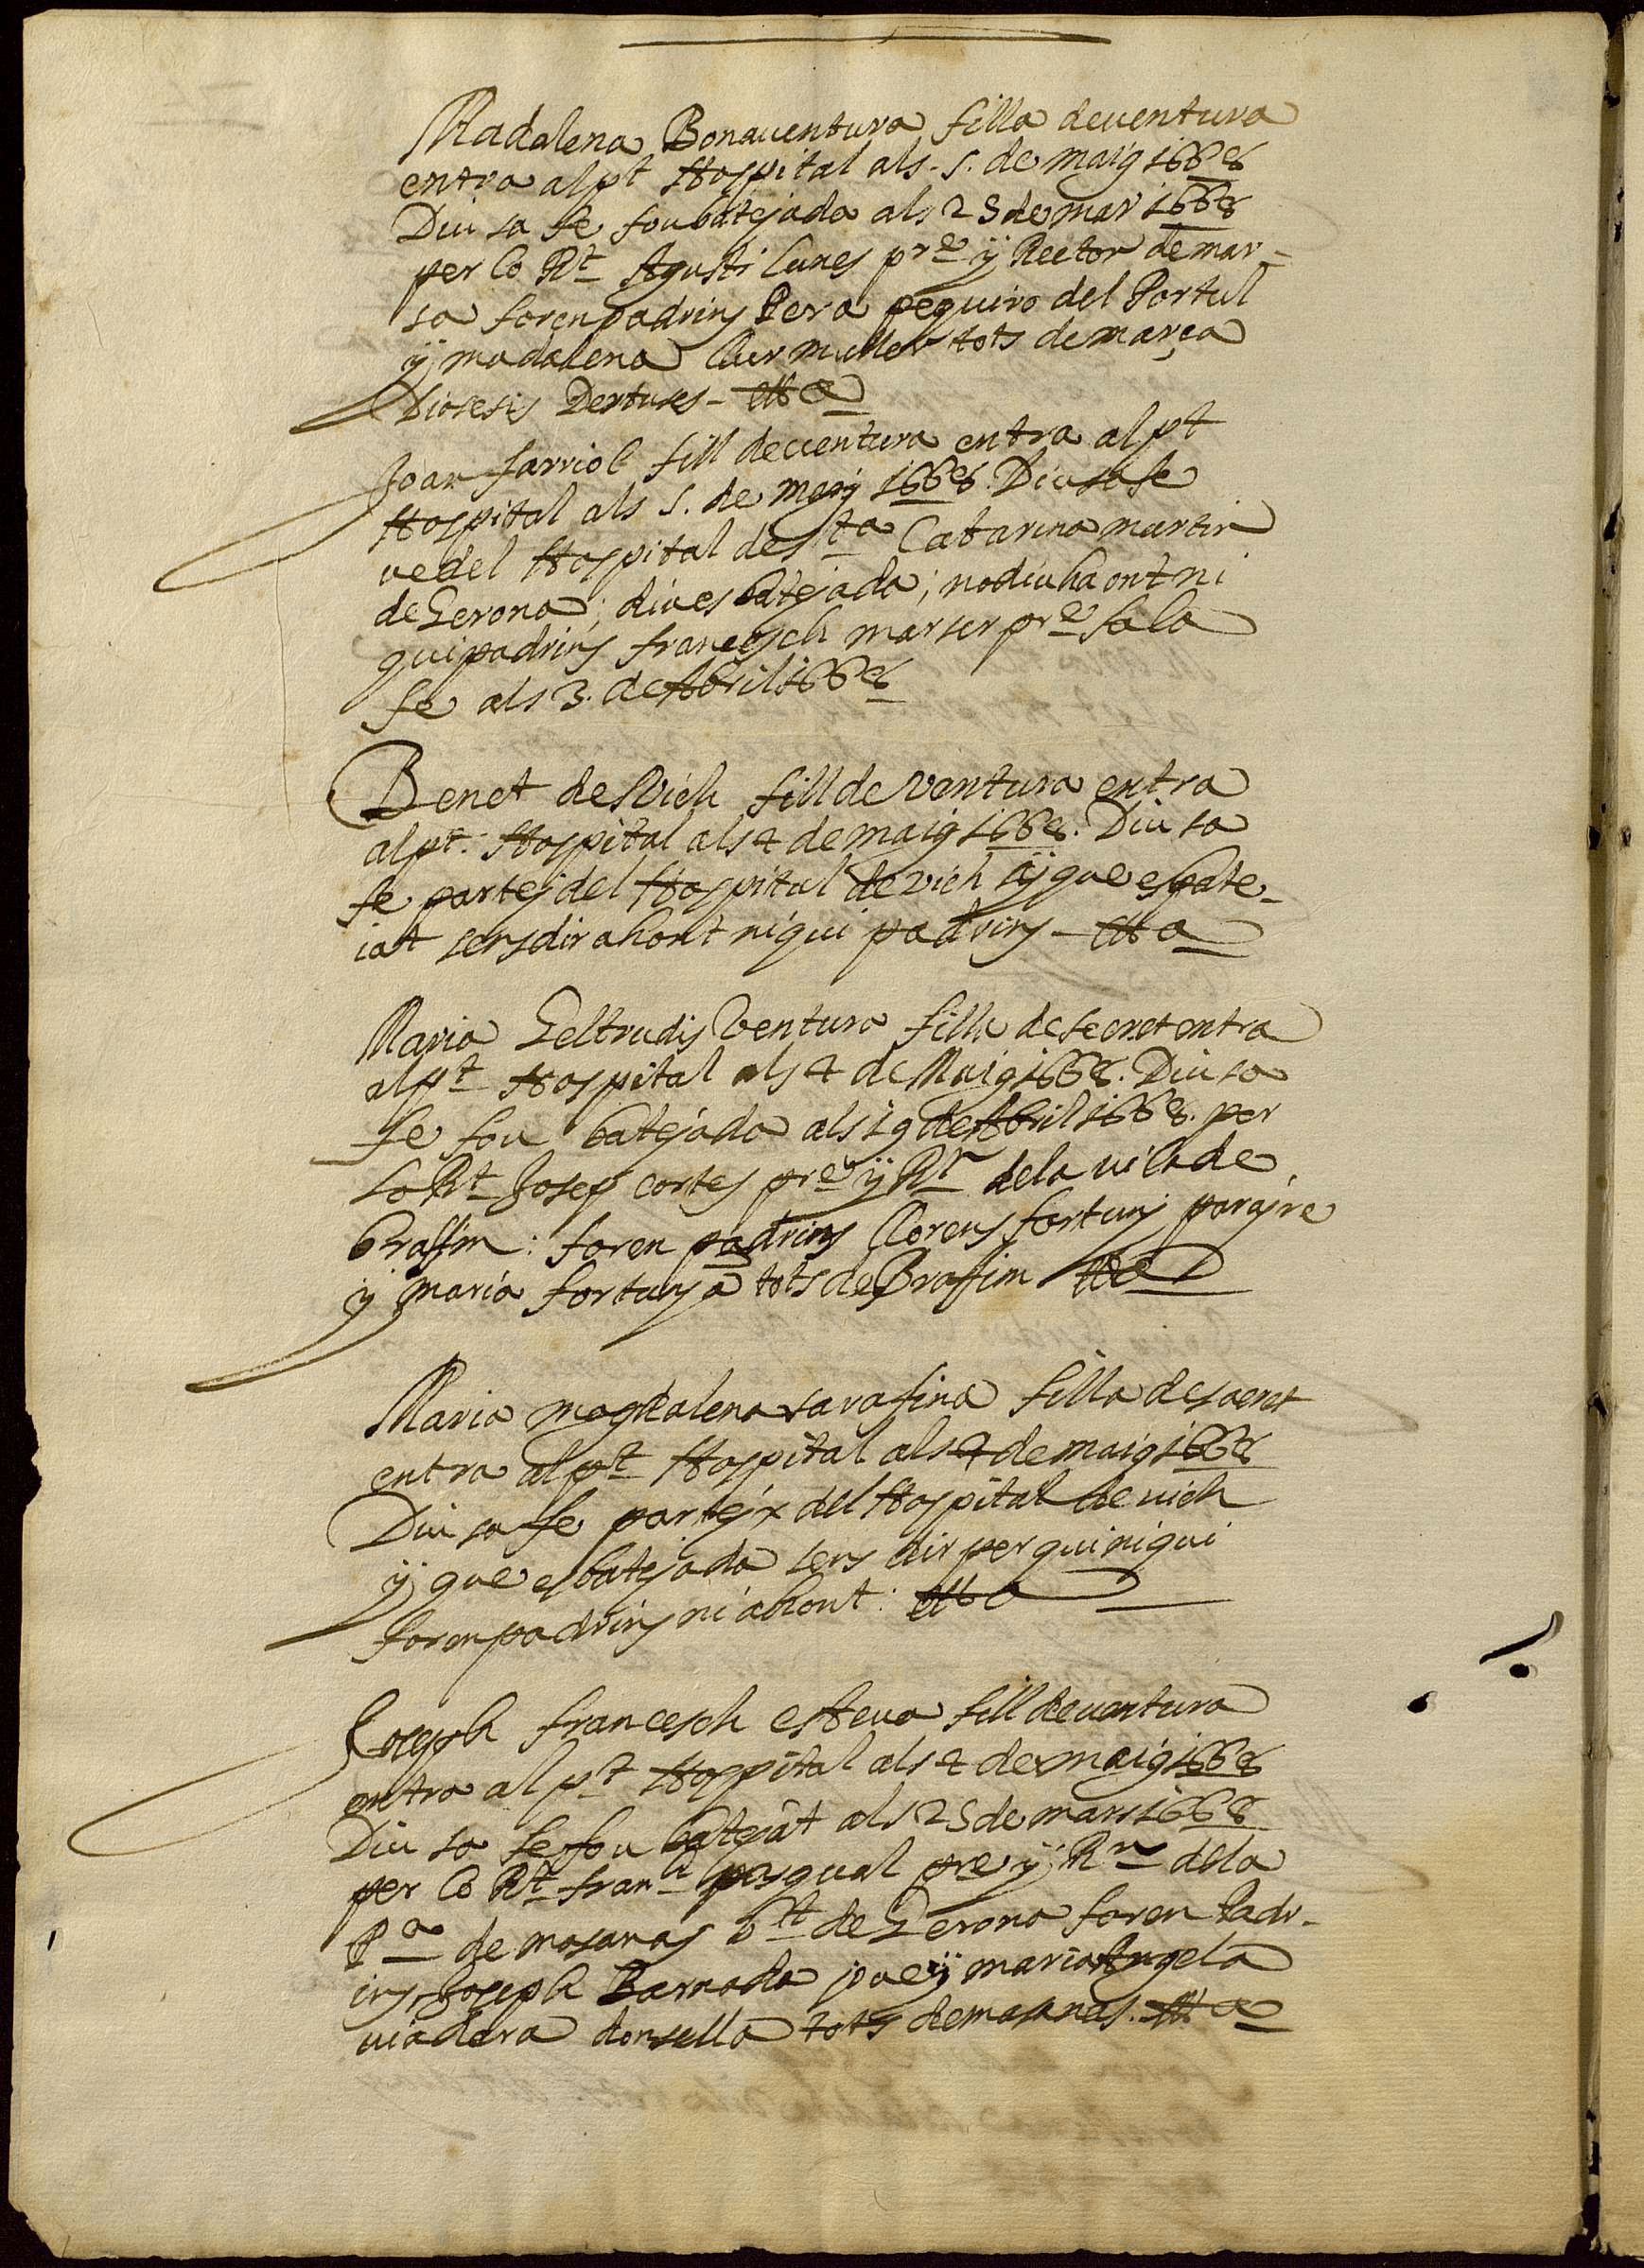 Madalena Bonaventura filla deventura
entra alpt Hospital als. 5. de maig 1668
Diu sa fe foubatejada als 25 de mars 1668
per lo Rt Agusti lunes pre ÿ Rector de mar-
sa forenpadrins Pera peguiro del Portal
ÿ madalena muller tots de março
Diosesis Dertuses - Ma
Joan farriol fill deventura entra alpt
Hospital als 5. de maig 1668. Diu sa fe
ve del Hospital de Sta Catarina martir
de Gerona; diu es batejada; nodiu ha ont ni
qui padrins francesch marser pre fa la
fe als 3. de Abril 1668
Benet de Vich fill de Ventura entra
alpt. Hospital als 4 de maig 1668. Diu sa
fe partej del Hospital de vich ÿ que es bate-
iat sens dir ahont ni qui padrins - Ma
Maria Geltrudis Ventura filla de secret entra
alpt Hospital als 4 de Maig 1668. Diu sa
fe fou batejada als 19 de Abril 1668. per
Lo Rt Josep cortes pre ÿ Rr dela vila de
braffim: foren padrins llorens fortuny parayre
ÿ maria fortunya tots de Braffim Ma
Maria magdalena sarafina filla de sacret
entra alpt Hospital als 4 de maig 1668
Diu sa fe partejx del Hospital de vich
ÿ que es batejada sens dir per qui ni qui
foren padrins ni ahont: Ma
Joseph francesch esteva fill deventura
entra al pt Hospital als 4 de maig 1668
Diu sa fe fou batejat als 25 de mars 1668
per lo Rt franh pasqual pre ÿ Rr dela
Pa de masanas bt de Gerona foren Padr-
ins Joseph Barnada ÿ maria Angela
viadera donsella tots demasanas. Ma